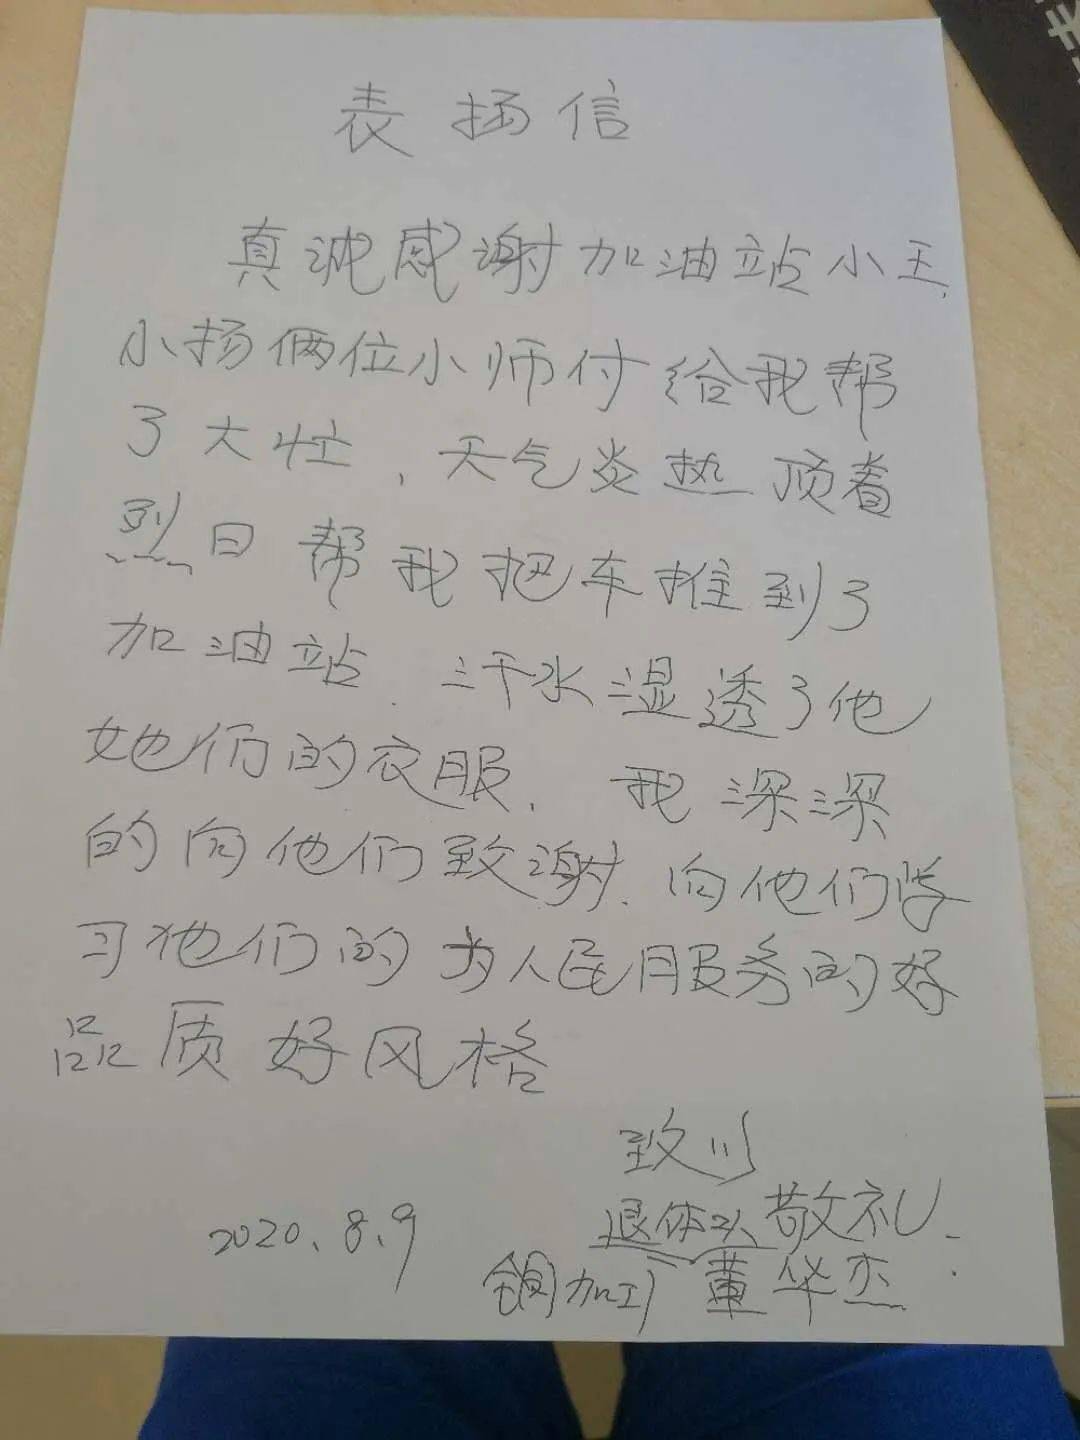 表扬信
真诚感谢加油站小王，
小扬俩位小师付给我帮
了大忙，天气炎热顶着
烈日帮我把车推到了
加油站 汗水湿透了他
她们的衣服，我深深
的向他们致谢，向他们学
习他们的为人民服务的好
品质好风格
致以
退休工人敬礼
2020.8.9
铜加工厂董华杰